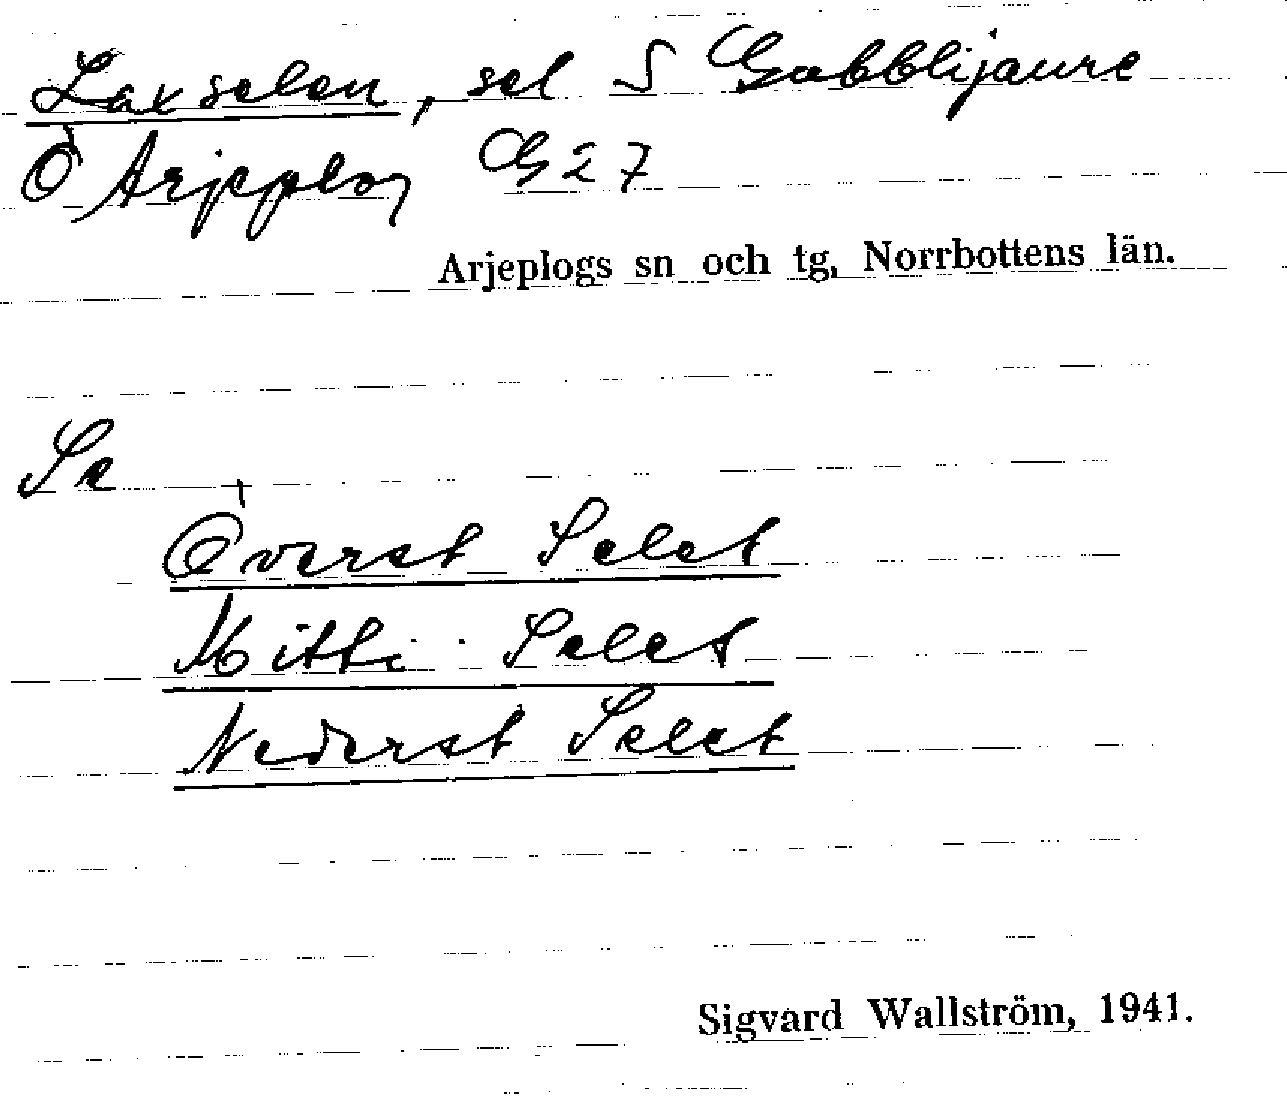 Laxselen, sel S Gabblijaure
Ö Arjeplog G 27
Arjeplogs sn och tg, Norrbottens län.
Se
Överst Selet
Mitti Selet
Nederst Selet
Sigvard Wallström, 1941.